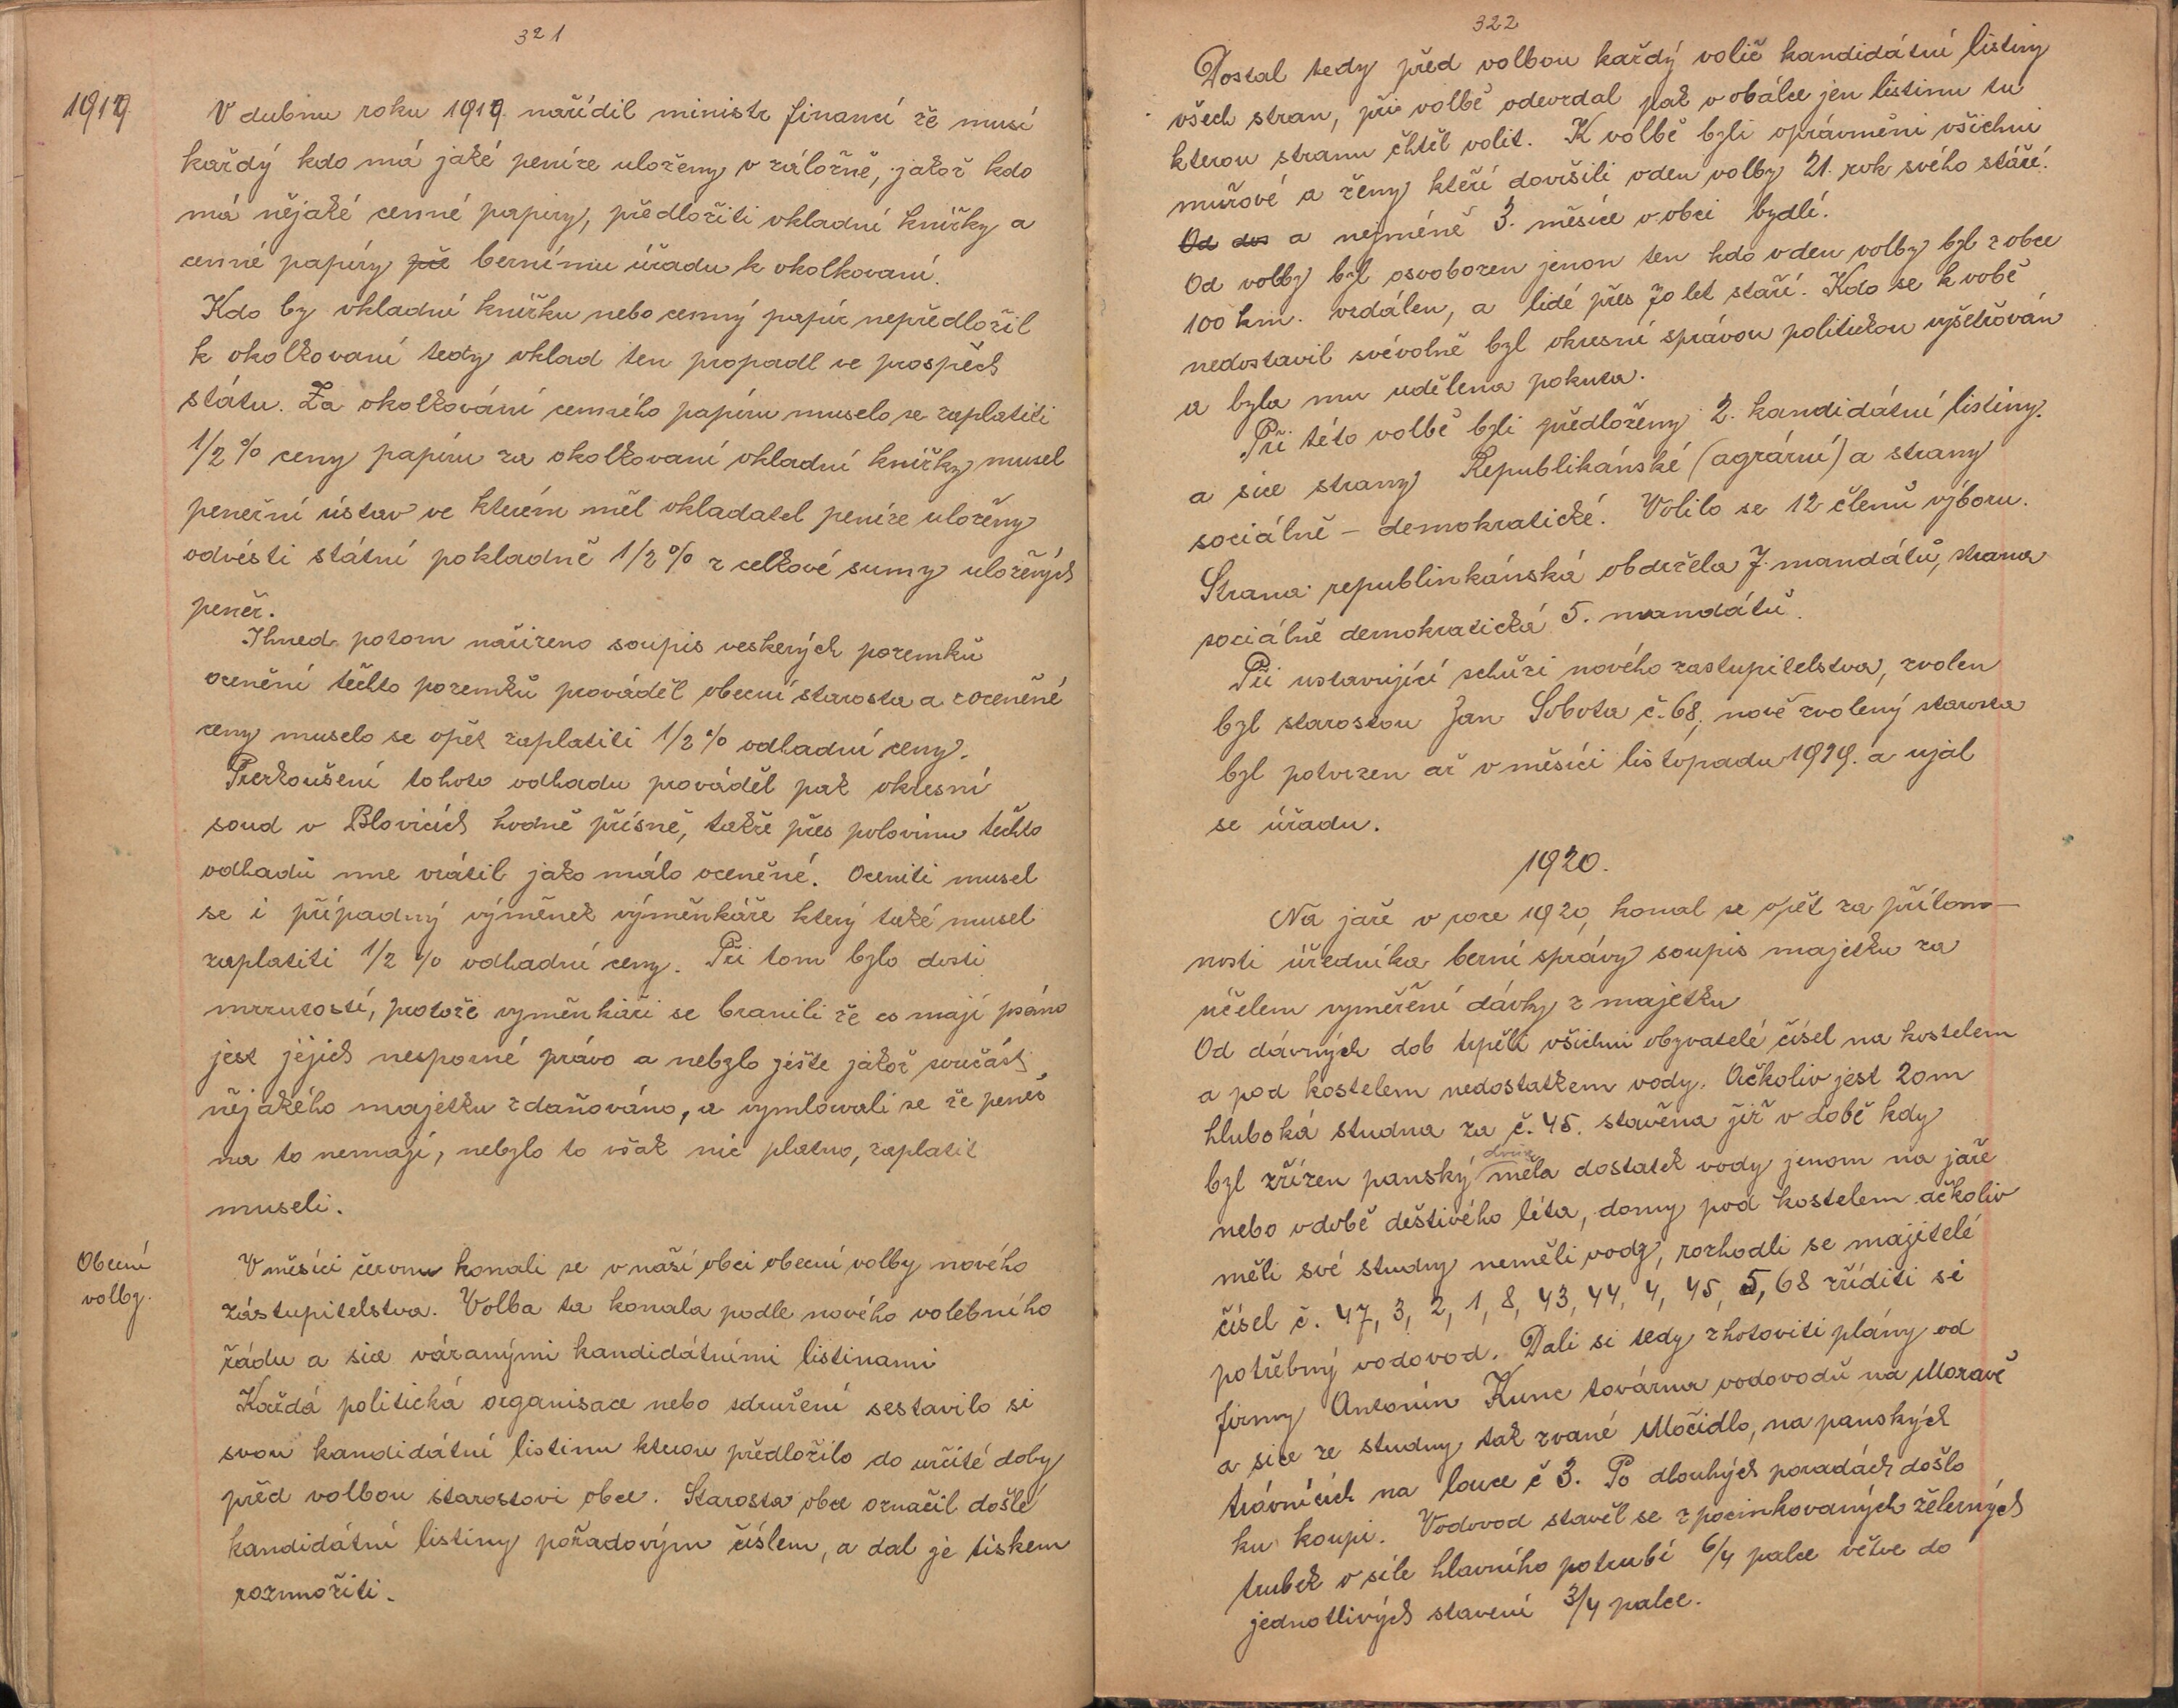 321
1919.
V dubnu roku 1919. nařídil ministr financí že musí
každý kdo má jaké peníze uloženy v záložně, jakož kdo
má nějaké cenné papíry, předložiti vkladní knížky a
cenné papíry pře bernímu úřadu k okolkovaní.
Kdo by vkladní knížku nebo cenný papír nepředložil
k okolkovaní tedy vklad ten propadl ve prospěch
státu. Za okolkování cenného papíru muselo se zaplatiti
1/2 % ceny papíru za okolkovaní vkladní knížky musel
peněžní ústav ve kterém měl vkladatel peníze uloženy
odvésti státní pokladně 1/2 % z celkové sumy uložených
peněz.
Ihned potom nařizeno soupis veskerých pozemků
ocenění těchto pozemků prováděl obecní starosta a z oceněné
ceny muselo se opět zaplatiti 1/2 % odhadní ceny.
Přezkoušení tohoto odhadu prováděl pak okresní
soud v Blovicích hodně přísně, takže přes polovinu těchto
odhadů mne vrátil jako málo oceněné. Oceniti musel
se i případný výměnek výměnkáře který také musel
zaplatiti 1/2 % odhadní ceny. Při tom bylo dosti
mrzutostí, protože výměnkáři se branili že co mají psáno
jest jejich nesporné právo a nebylo ješte jakož součást
nějakého majetku zdaňováno, a vymlouvali se že peněz
na to nemají, nebylo to však nic platno, zaplatit
museli.
Obecní
volby.
V měsíci červnu konali se v naší obci obecní volby nového
zástupitelstva. Volba ta konala podle nového volebního
řádu a sice vázanými kandidátními listinami
Každá politická organisace nebo sdružení sestavilo si
svou kandidátní listinu kterou předložilo do určité doby
před volbou starostovi obce. Starosta obce označil došlé
kandidátní listiny pořadovým číslem, a dal je tiskem
rozmnožiti.
322
Dostal tedy před volbou každý volič kandidátní listiny
všech stran, při volbě odevzdal pak v obálce jen listinu tu
kterou stranu chtěl volit. K volbě byli oprávněni všichni
mužové a ženy kteří dovršili v den volby 21. rok svého stáří.
Od dos a nejméně 3. měsíce v obci bydlí.
Od volby byl osvobozen jenom ten kdo v den volby byl z obce
100 km. vzdálen, a lidé přes 70 let staří. Kdo se k vobě
nedostavil svévolně byl okresní správou politickou vyšetřován
a byla mu udělena pokuta.
Při této volbě byli předloženy 2. kandidátní listiny.
a sice strany Republikánské (agrární) a strany
sociálně - demokratické. Volilo se 12 členů výboru.
Strana republinkánská obdržela 7. mandátů, strana
sociálně demokratická 5. mandátů.
Při ustavující schůzi nového zastupitelstva, zvolen
byl starostou Jan Sobota č. 68, nově zvolený starosta
byl potvrzen až v měsíci listopadu 1919. a ujal
se úřadu.
1920.
Na jaře v roce 1920, konal se opět za přítom-
nosti úředníka berní správy soupis majetku za
účelem vyměření dávky z majetku
Od dávných dob trpěli všichni obyvatelé čísel na kostelem
a pod kostelem nedostatkem vody. Ačkoliv jest 20m
hluboká studna za č. 45. stavěna již v době kdy
dvůr
byl zřízen panský měla dostatek vody jenom na jaře
nebo v době deštivého léta, domy pod kostelem ačkoliv
měli své studny neměli vody, rozhodli se majitelé
čísel č. 47, 3, 2, 1, 8, 43, 44, 4, 45, 5, 68 zříditi si
potřebný vodovod. Dali si tedy zhotoviti plány od
firmy Antonín Kunc továrna vodovodů na Moravě
a sice ze studny tak zvané Močidlo, na panských
trávnících na louce č 3. Po dlouhých poradách došlo
ku koupi. Vodovod stavěl se z pocinkovaných železných
trubek v síle hlavního potrubí 6/4 palce větve do
jednotlivých stavení 3/4 palce.